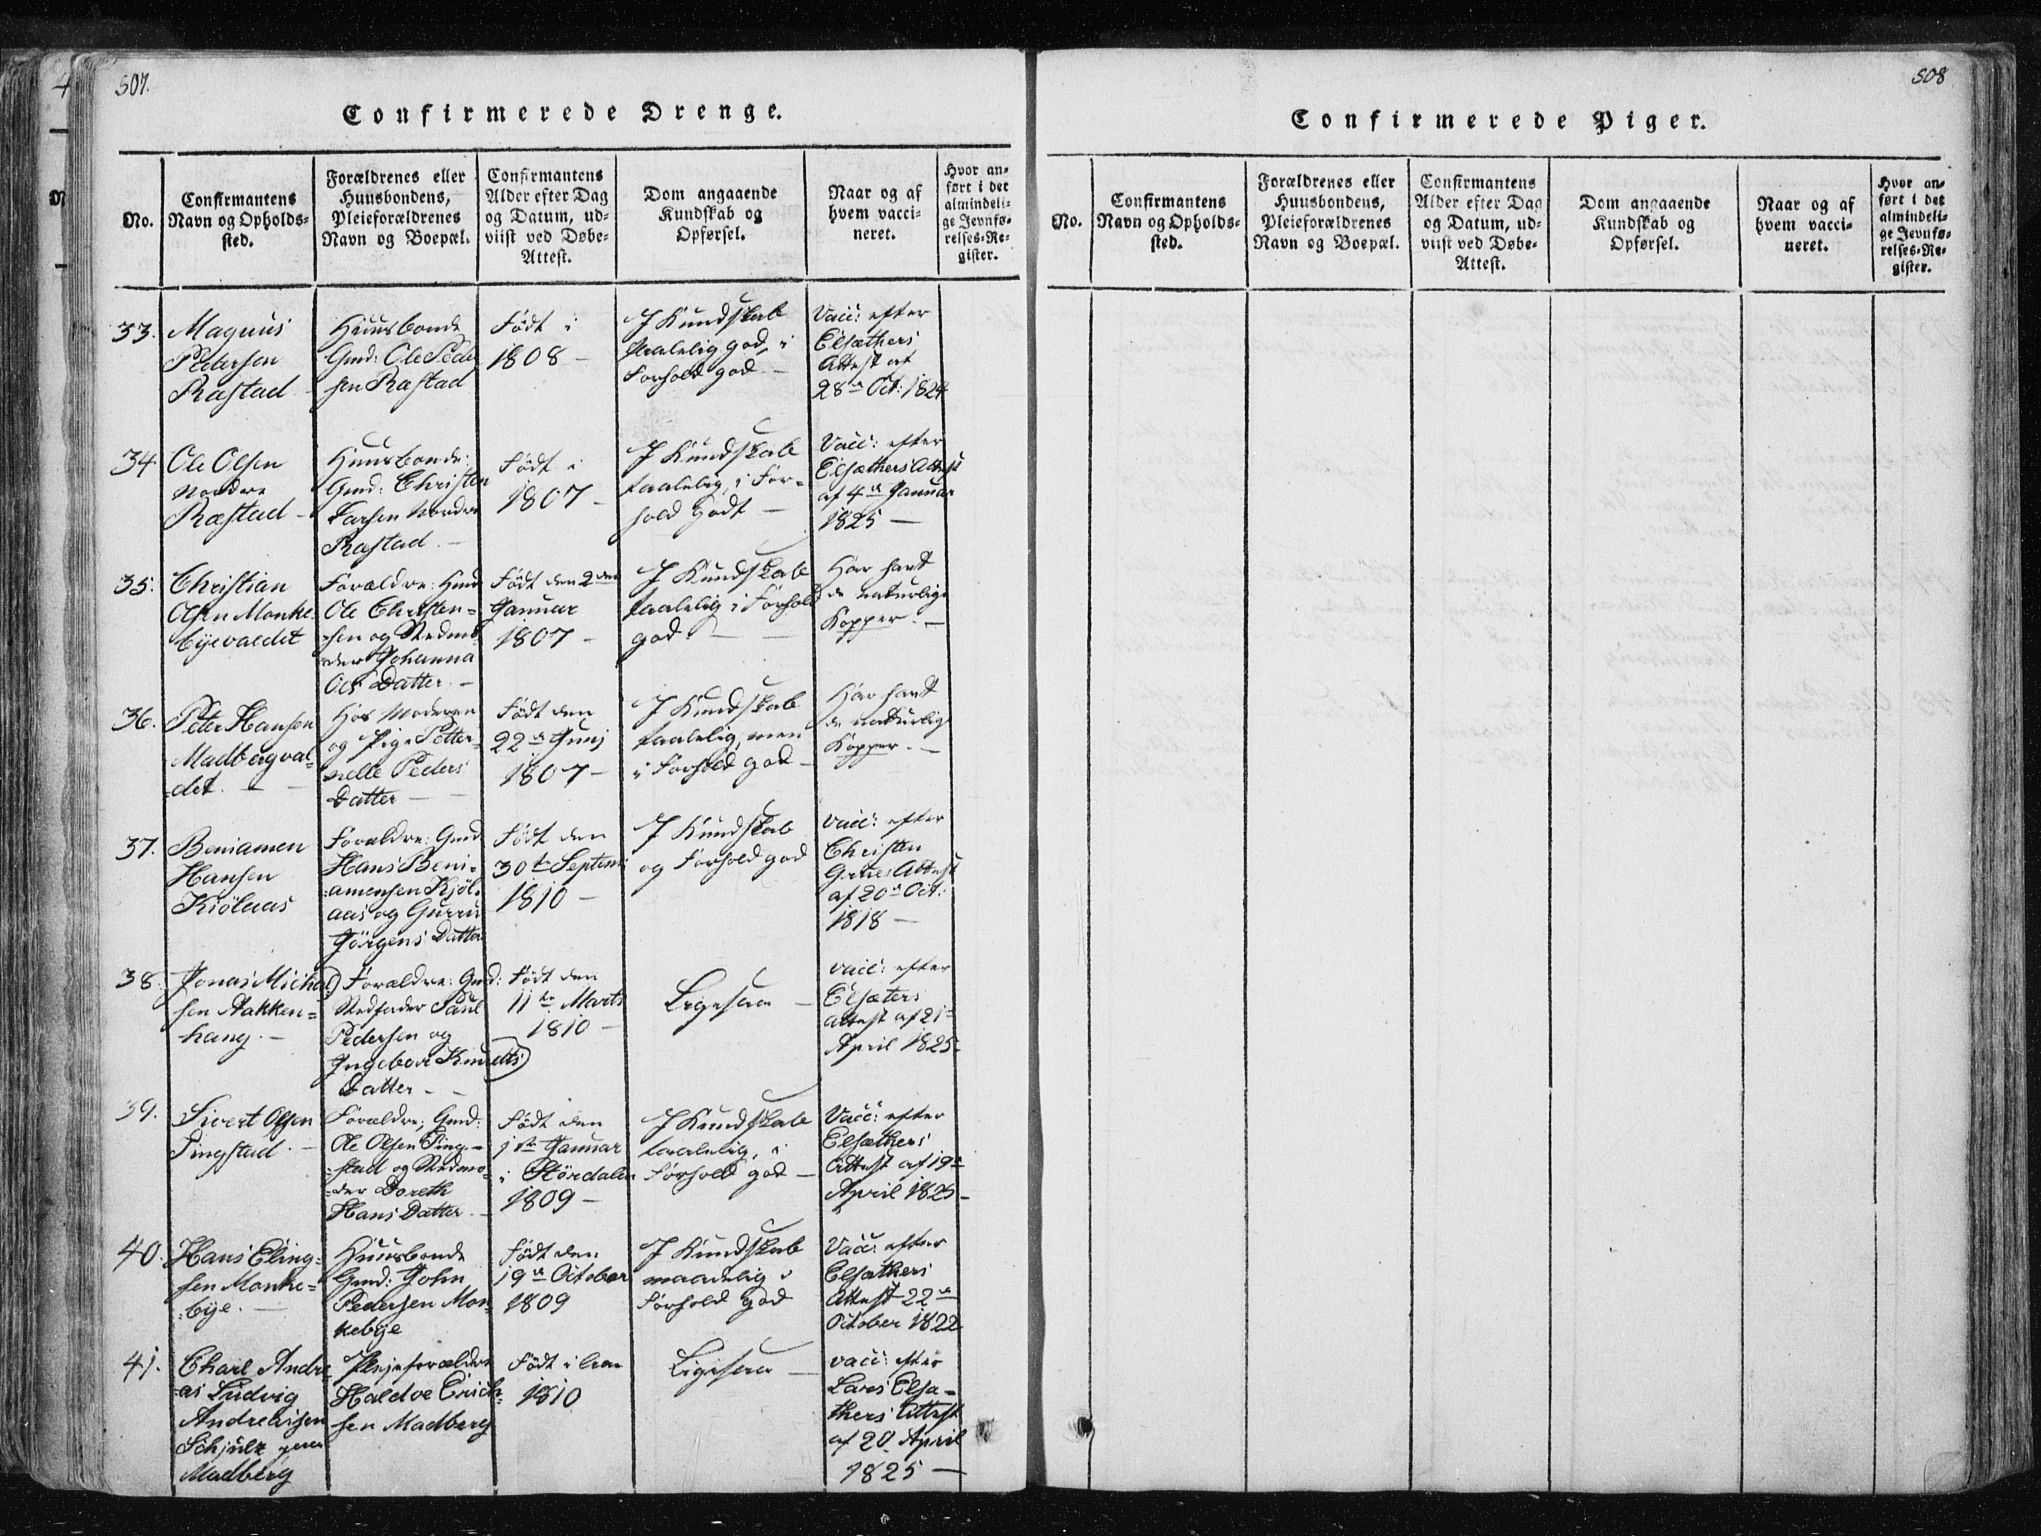 507.
Confirmerede Drenge.
No.
Confirmantens
Navn og Opholds-
sted.
Forældrenes eller
Huusbondens,
Pleieforældrenes
Navn og Boepæl.
Confirmantens
Alder efter Dag
og Datum, ud-
viist ved Døbe-
Attest.
Dom angaaende
Kundskab og
Opførsel.
Naar og af
hvem vacci-
neret.
Hvor an-
ført i det
almindeli-
ge Jevnfø-
relses-Re-
gister.
33.
Magnus
Pedersen
Ræstad
Huusbonde
Gmd: Ole Peder
sen Ræstad
Født i
1808 –
I Kundskab
taalelig god, i
Forhold god. –
Vacc: efter
Elsæthers
Attest af
28de Oct: 1824
34
Ole Olsen
Nordre
Ræstad –
Huusbonde:
Gmd: Christen
Larsen Nordre
Ræstad. –
Født i
1807 –
I Kundskab
taalelig, i For-
hold godt –
Vacc: efter
Elsæthers Attest
af 4de Januar
1825 –
35.
Christian
Olsen Monke-
byevaldet
Forældre: Gmd
Ole Christen-
sen og Stedmo
der Johanna
Ols Datter. –
Født den 2den
Januar
1807 –
I Kundskab
taalelig i Forhold
god. –
Har havt
de naturlige
Kopper. –
36.
Peter Hansen
Madbergval-
det. –
Hos Moderen
og Pige Petter-
nelle Peders
Datter –
Født den
22de Junj
1807 –
I Kundskab
taalelig, men
i Forhold god –
Har havt
de naturlige
Kopper. –
37.
Beniamen
Hansen
Kiölaas
Forældre: Gmd
Hans Beni-
amensen Kjöl-
aas og Gurru
Jörgens Datter
Født den
30te Septem:
1810 –
I Kundskab
og Forhold god
Vacc: efter
Christen
Grues Attest
af 20de Oct:
1818 –
38.
Jonas Micha
sen Aakken-
haug. –
Forældre: Gmd:
Stedfader Paul
Pedersen og
Ingebor Knudts
Datter –
Født den
11te Marts
1810 –
Ligesaa –
Vacc: efter
Elsæters
Attest af 21de
April 1825
39.
Sivert Olsen
Pingstad. –
Forældre; Gmd:
Ole Olsen Ping-
stad og Stedmo-
der Doreth
Hans Datter. –
Født den
1ste Januar
i Størdalen
1809 –
I Kundskab
taalelig, i
Forhold god –
Vacc: efter
Elsæthers
Attest af 19de
April 1825 –
40.
Hans Eling-
sen Monke-
bye. –
Huusbonde
Gmd: John
Pedersen Mon-
kebye
Født den
19de October
1809
I Kundskab
maadelig i
Forhold god
Vacc: efter
Elsæthers
Attest 22de
October 1822
41.
Charl Andre
as Ludvig
Andreasen
Schjulz
Madberg
Plejeforældre
Haldoe Erich-
sen Madberg
Født i
1810
Ligesaa –
Vacc: efter
Lars Elsæ-
thers Attest
af 20 April
1825 –
508
Confirmerede Piger.
No.
Confirmantens
Navn og Opholds-
sted.
Forældrenes eller
Huusbondens,
Pleieforældrenes
Navn og Boepæl.
Confirmantens
Alder efter Dag
og Datum, ud-
viist ved Døbe-
Attest.
Dom angaaende
Kundskab og
Opførsel.
Naar og af
hvem vacci-
neret.
Hvor an-
ført i det
almindeli-
ge Jevnfø-
relses-Re-
gister.